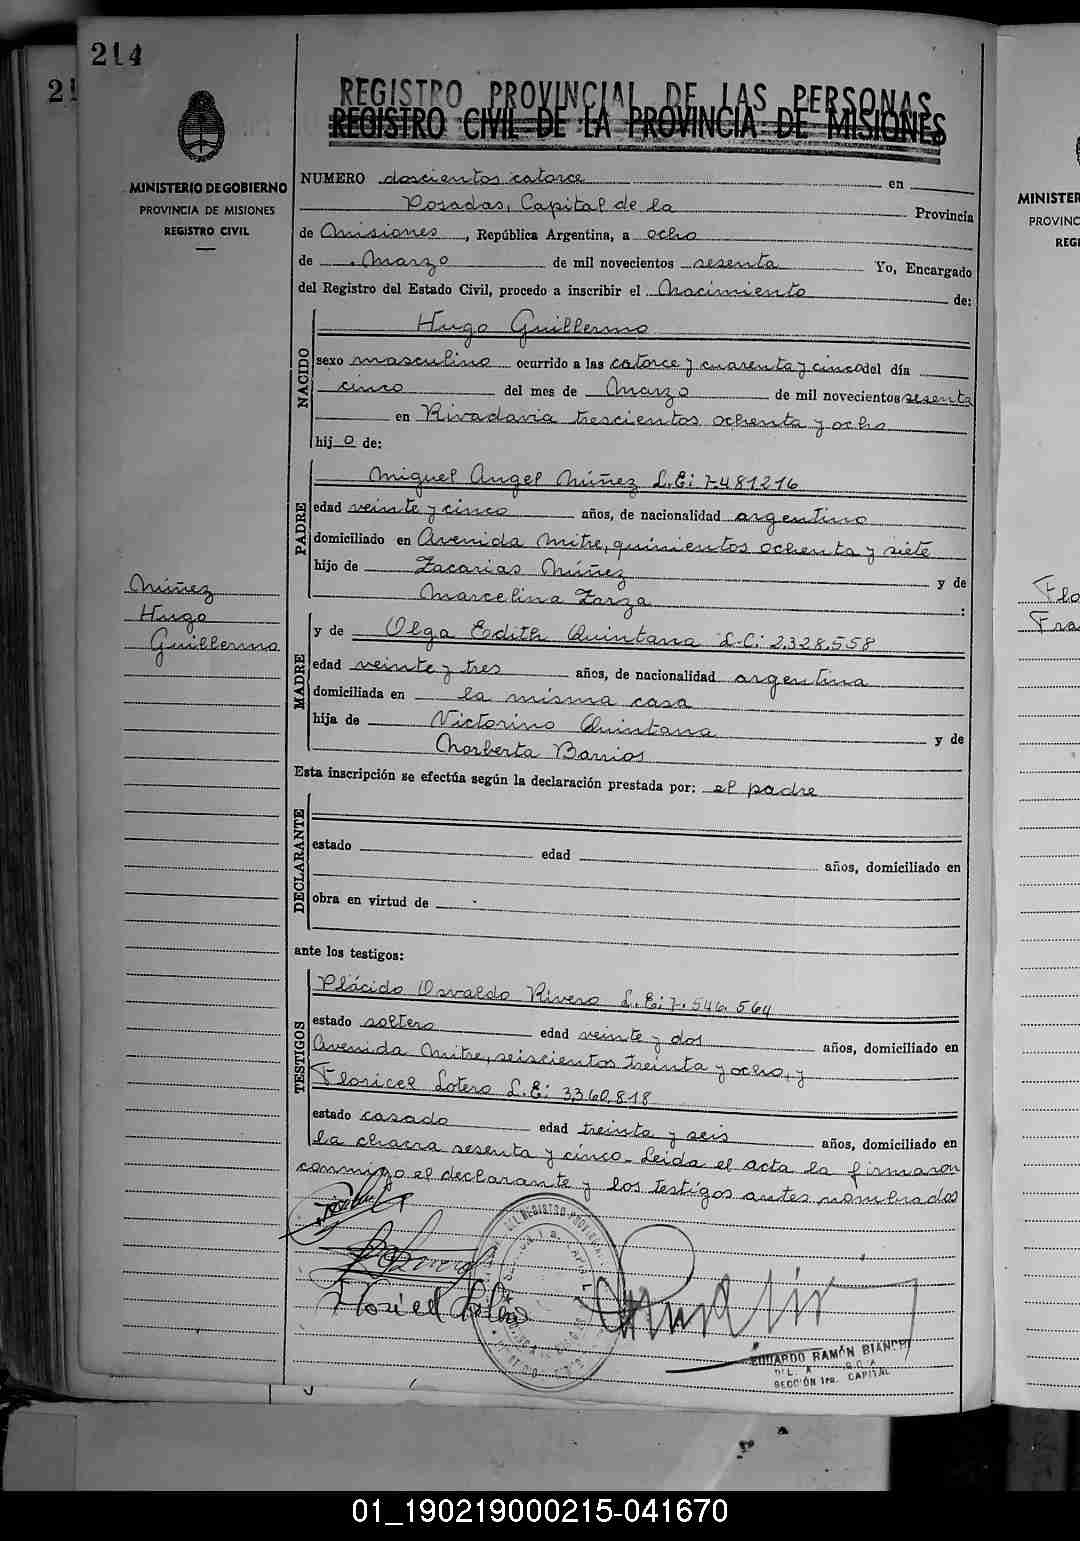 214
21
REGISTRO PROVINCIAL DE LAS PERSONAS
REGISTRO CIVIL DE LA PROVINCIA DE MISIONES
MINISTERIO DE GOBIERNO
PROVINCIA DE MISIONES
REGISTRO CIVIL
NUMERO doscientos catorce en
Posadas, Capital de la Provincia
de Misiones, República Argentina, a ocho
de Marzo de mil novecientos sesenta Yo, Encargado
del Registro del Estado Civil, procedo a inscribir el Nacimiento de:
NACIDO
Hugo Guillermo
sexo masculino ocurrido a las catorce y cuarenta y cinco del día
cinco del mes de Marzo de mil novecientos sesenta
en Rivadavia trescientos ochenta y ocho
hijo de:
PADRE
Miguel Angel Núñez L.E: 7.481216
edad veinte y cinco años, de nacionalidad argentino
domiciliado en Avenida Mitre, quinientos ochenta y siete
hijo de Zacarias Núñez y de
Marcelina Zarza :
Núñez
Hugo
Guillermo
MADRE
y de Olga Edith Quintana L.C: 2.328.558
edad veinte y tres años, de nacionalidad argentina
domiciliada en la misma casa
hija de Victorino Quintana y de
Norberta Barrios
Esta inscripción se efectúa según la declaración prestada por: el padre
DECLARANTE
estado edad años, domiciliado en
obra en virtud de
ante los testigos:
TESTIGOS
Plácido Osvaldo Rivero L.E: 7.546.564
estado soltero edad veinte y dos años, domiciliado en
Avenida Mitre, seiscientos treinta y ocho, y
Floricel Lotero L.E: 3.360.818
estado casado edad treinta y seis años, domiciliado en
la chacra sesenta y cinco. Leida el acta la firmaron
conmigo el declarante y los testigos antes nombrados
Floricel Lotero
EDUARDO RAMÓN BIANCHI
SECCIÓN 1ra. CAPITAL
MINISTER
PROVINC
REGI
Flo
Fra
01_190219000215-041670